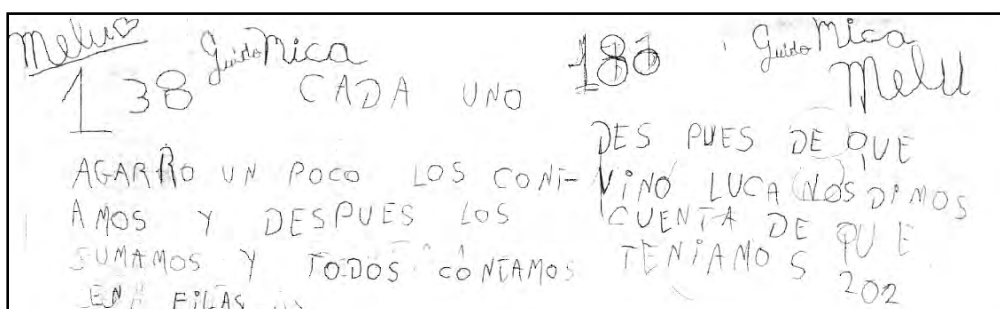 Melu
Guido Mica
138 CADA UNO
AGARRO UN POCO LOS CONT-
AMOS Y DESPUES LOS
SUMAMOS Y TODOS CONTAMOS
EN FILAS
180
Guido Mica
Melu
DES PUES DE QUE
VINO LUCA NOS DIMOS
CUENTA DE QUE
TENIAMOS
202